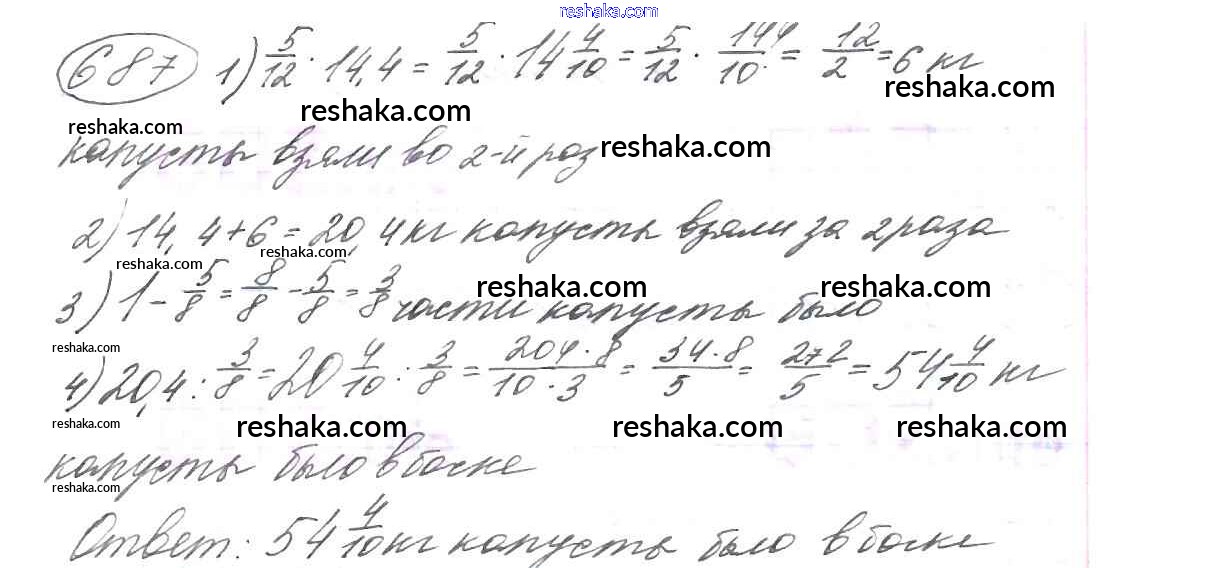 reshaka.com
687 1) 5/12 · 14,4 = 5/12 · 14 4/10 = 5/12 · 144/10 = 12/2 = 6 кг
reshaka.com reshaka.com reshaka.com
капусты взяли во 2-й раз reshaka.com
2) 14,4+6 = 20,4 кг капусты взяли за 2 раза
reshaka.com reshaka.com
3) 1 - 5/8 = 8/8 - 5/8 = 3/8 части капусты было
reshaka.com reshaka.com
reshaka.com
4) 20,4 : 3/8 = 20 4/10 : 3/8 = 204·8/10·3 = 34·8/5 = 272/5 = 54 4/10 кг
reshaka.com reshaka.com reshaka.com reshaka.com
капусты было в бочке
reshaka.com
Ответ: 54 4/10 кг капусты было в бочке